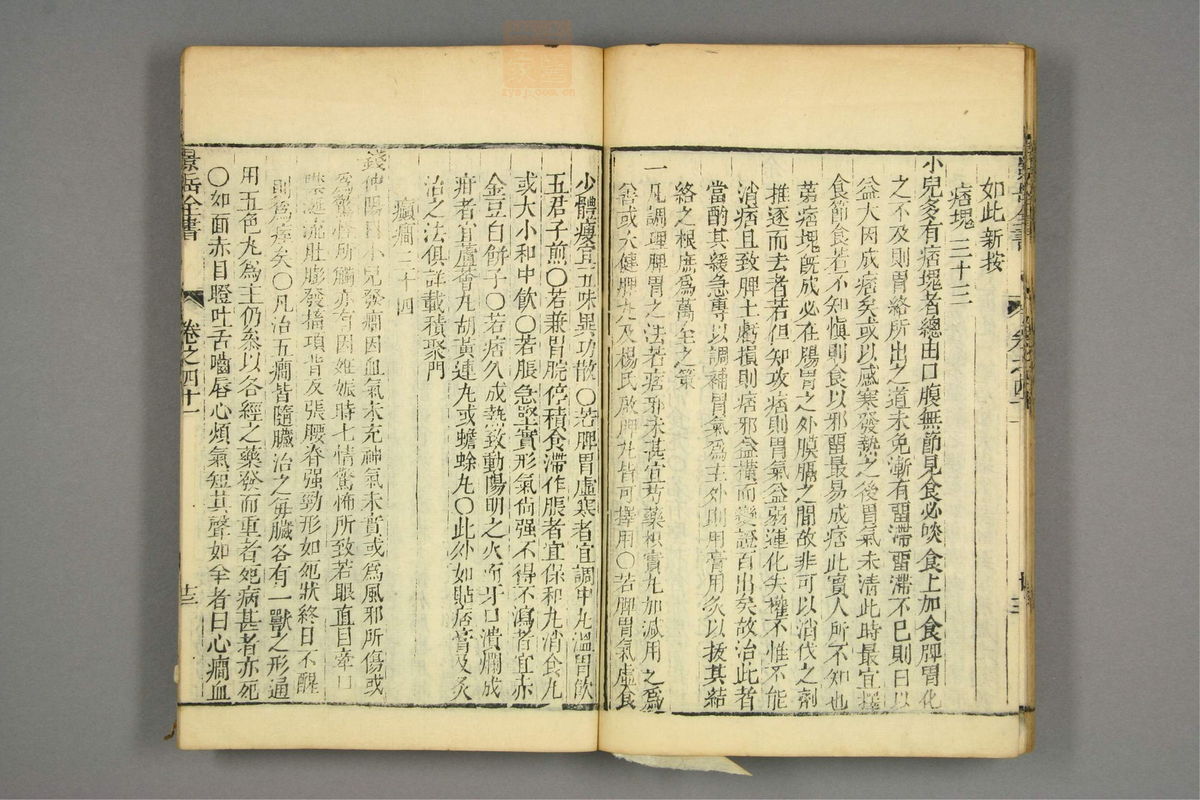 如此新按
痞塊 三十三
小兒多有痞塊者總由口腹無節見食必啖食上加食脾胃化
之不及則胃絡所出之道未免漸有畱滯畱滯不已則日以
益大因成痞矣或以感寒發熱之後胃氣未清此時最宜擇
食節食若不知慎則食以邪畱最易成痞此實人所不知也
第痞塊旣成必在腸胃之外膜膈之間故非可以消伐之劑
推逐而去者若但知攻痞則胃氣益弱運化失權不惟不能
消痞且致脾土虧損則痞邪益橫而變證百出矣故治此者
當酌其緩急專以調補胃氣爲主外則用膏用灸以拔其結
絡之根庶爲萬全之策
一凡調理脾胃之法若痞邪未甚宜芍藥枳實丸加減用之爲
善或大健脾丸及楊氏啟脾丸皆可擇用〇若脾胃氣虛食
少體瘦宜五味異功散〇若脾胃虛寒者宜調中丸溫胃飲
五君子煎〇若兼胃脘停積食滯作脹者宜保和丸消食丸
或大小和中飲〇若脹急堅實形氣尙强不得不瀉者宜赤
金豆白餅子〇若痞久成熱致動陽明之火而牙口潰爛成
疳者宜蘆薈丸胡黃連丸或蟾蜍丸〇此外如貼痞膏及灸
治之法俱詳載積聚門
癲癇 三十四
錢仲陽曰小兒發癇因血氣未充神氣未實或爲風邪所傷或
爲驚怪所觸亦有因姙娠時七情驚怖所致若眼直目牽口
噤涎流肚膨發搐項背反張腰脊强勁形如死狀終日不醒
則爲痓矣〇凡治五癇皆隨臟治之每臟各有一獸之形通
用五色丸爲主仍叅以各經之藥發而重者死病甚者亦死
〇如面赤目瞪吐舌嚙唇心煩氣短其聲如羊者曰心癇血
景岳全書
卷之四十一